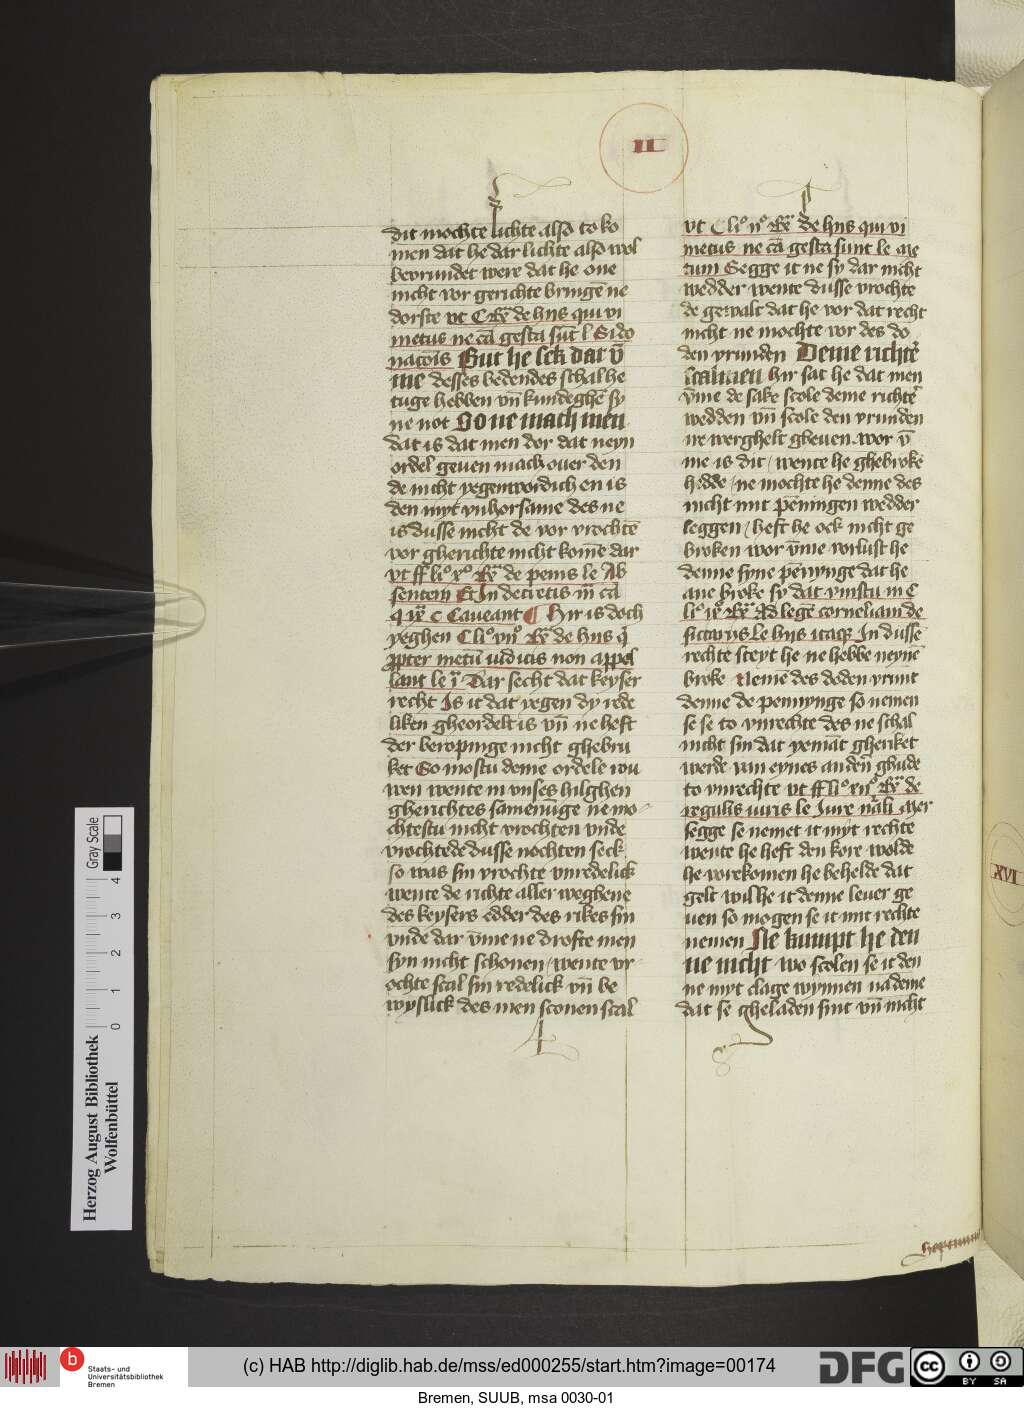 II
dit mochte lichte also to ko
men dat he dar lichte also wol
bevrundet were dat he one
nicht vor gerichte bringē ne
dorste vt C Rͬ de hijs qui vi
metus ne cā gesta sūt l Si do
nacōis Gut he sek dar v̄
me desses bedendes schal he
tuge hebben vn̄ kundeghē sy
ne not So ne mach men
dat is dat men dor dat neyn
ordel geuen mach ouer den
de nicht yegenwordich en is
den myt vnhorsame des ne
is dusse nicht de vor vrochtē
vor gherichte nicht komē dar
vt ff liº xº Rͬ de penis le Ab
sentem Et In decretis iij cā
q ix c Caueant ¶ Hir is doch
yeghen C liº vijº Rͬ de hijs q̄
ꝓpter metū iudicis non appel
lant le i Dar secht dat keyser
recht Is it dat yegen dy rede
liken gheordelt is vn̄ ne heft
der beropinge nicht ghebru
ket So mostu deme ordele vou
wen wente in vnses hilghen
gherichtes samenūge ne mo
chtestu nicht vrochten vnde
vrochtede dusse nochten seck
so was sin vrochte vnredelick
wente de richte aller weghene
des keysers edder des rikes sin
vnde dar v̄me ne drofte men
syn nicht schonen / wente vr
ochte scal sin redelick vn̄ be
wyslick des men sconen scal
vt C liº ijº Rͬ de hijs qui vi
metus ne cā gesta sunt le me
tum Segge it ne sy dar nicht
wedder wente dusse vrochte
de gewalt dat he vor dat recht
nicht ne mochte vor des do
den vrunden Deme richtē
scalmen Hir sat he dat men
v̄me de sake scole deme richtē
wedden vn̄ scole den vrunden
ne werghelt gheuen wor v̄
me is dit / wente he ghebrokē
hedde / ne mochte he denne des
nicht mit pēningen wedder
leggen / heft he ock nicht ge
broken wor v̄me vorlust he
denne syne pēnynge dat he
ane broke sy dat vinstu in C
liº ixº Rͬ Ad legē corneliam de
sicarijs le hijs itaqꝫ In dusse
rechte steyt he ne hebbe neynē
broke Neme des doden vrunt
denne de pennynge so nemen
se se to vnrechte des ne schal
nicht sin dat yemāt gheriket
werde van eynes andern̄ ghude
to vnrechte vt ff liº xijº Rͬ de
regulis iuris le Iure nāli Mer
segge se nemet it myt rechte
wente he heft den kore wolde
he vorekomen he behelde dat
gelt wil he it denne leuer ge
uen so mogen se it mit rechte
nemen Ne kumpt he den
ne nicht wo scolen se it den
ne myt clage wynnen nademe
dat se gheladen sint vn̄ nicht
XVI
Herzog August Bibliothek
Wolfenbüttel
0 1 2 3 4
Gray Scale
b
Staats- und
Universitätsbibliothek
Bremen
(c) HAB http://diglib.hab.de/mss/ed000255/start.htm?image=00174
DFG
cc
BY SA
Bremen, SUUB, msa 0030-01